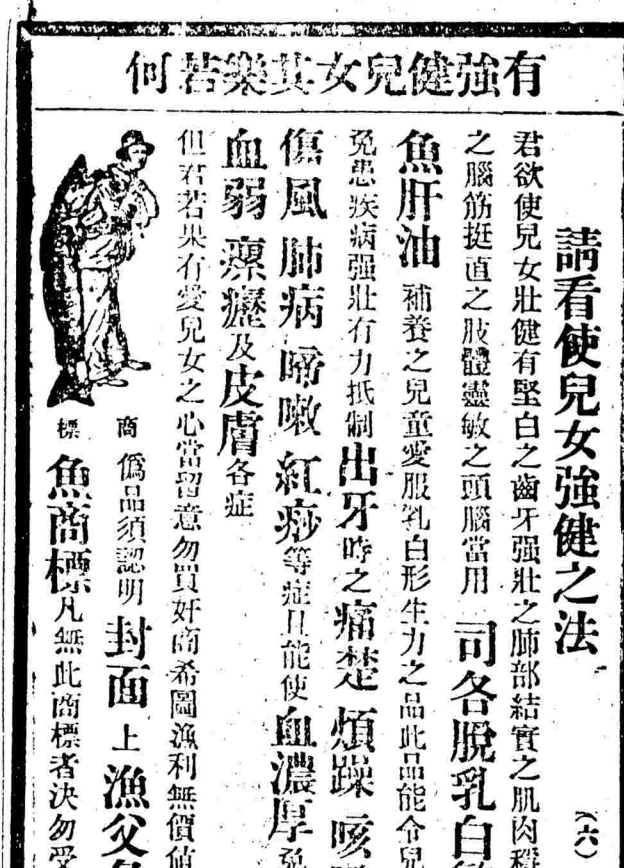 有強健兒女其樂若何
請看使兒女強健之法
(六)
君欲使兒女壯健有堅白之齒牙强壯之肺部結實之肌肉
之腦筋挺直之肢體靈敏之頭腦當用 司各脫乳白
魚肝油 補養之兒童愛服乳白形生力之品此品能令兒
免患疾病强壯有力抵制出牙時之痛楚 煩躁 咳
傷風 肺病 啼嗽 紅痧等症且能使血濃厚免
血弱 瘰癧及皮膚各症
但君若果有愛兒女之心當留意勿買奸商希圖漁利無價值
商標
僞品須認明 封面上漁父
魚商標凡無此商標者決勿受